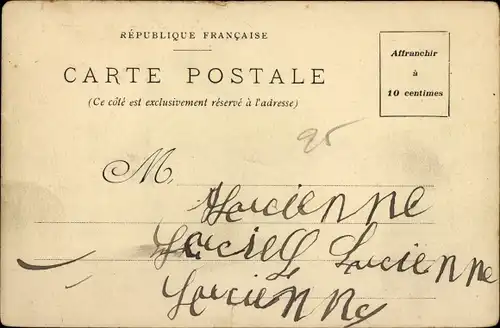 RÉPUBLIQUE FRANÇAISE
CARTE POSTALE
(Ce côté est exclusivement réservé à l'adresse)
Affranchir
à
10 centimes
95
M.
Lucienne
Lucienne
Lucienne